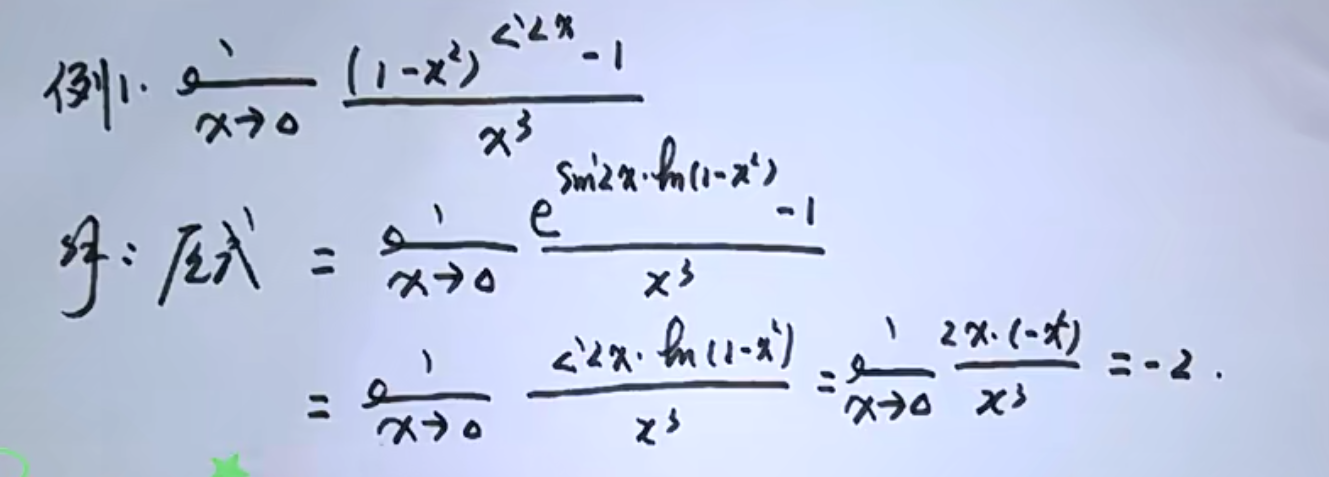 例1. lim x→0 ((1-x²)^(sin2x) - 1)/x³
解: 原式 = lim x→0 (e^(sin2x·ln(1-x²)) - 1)/x³
= lim x→0 (sin2x·ln(1-x²))/x³ = lim x→0 (2x·(-x²))/x³ = -2.